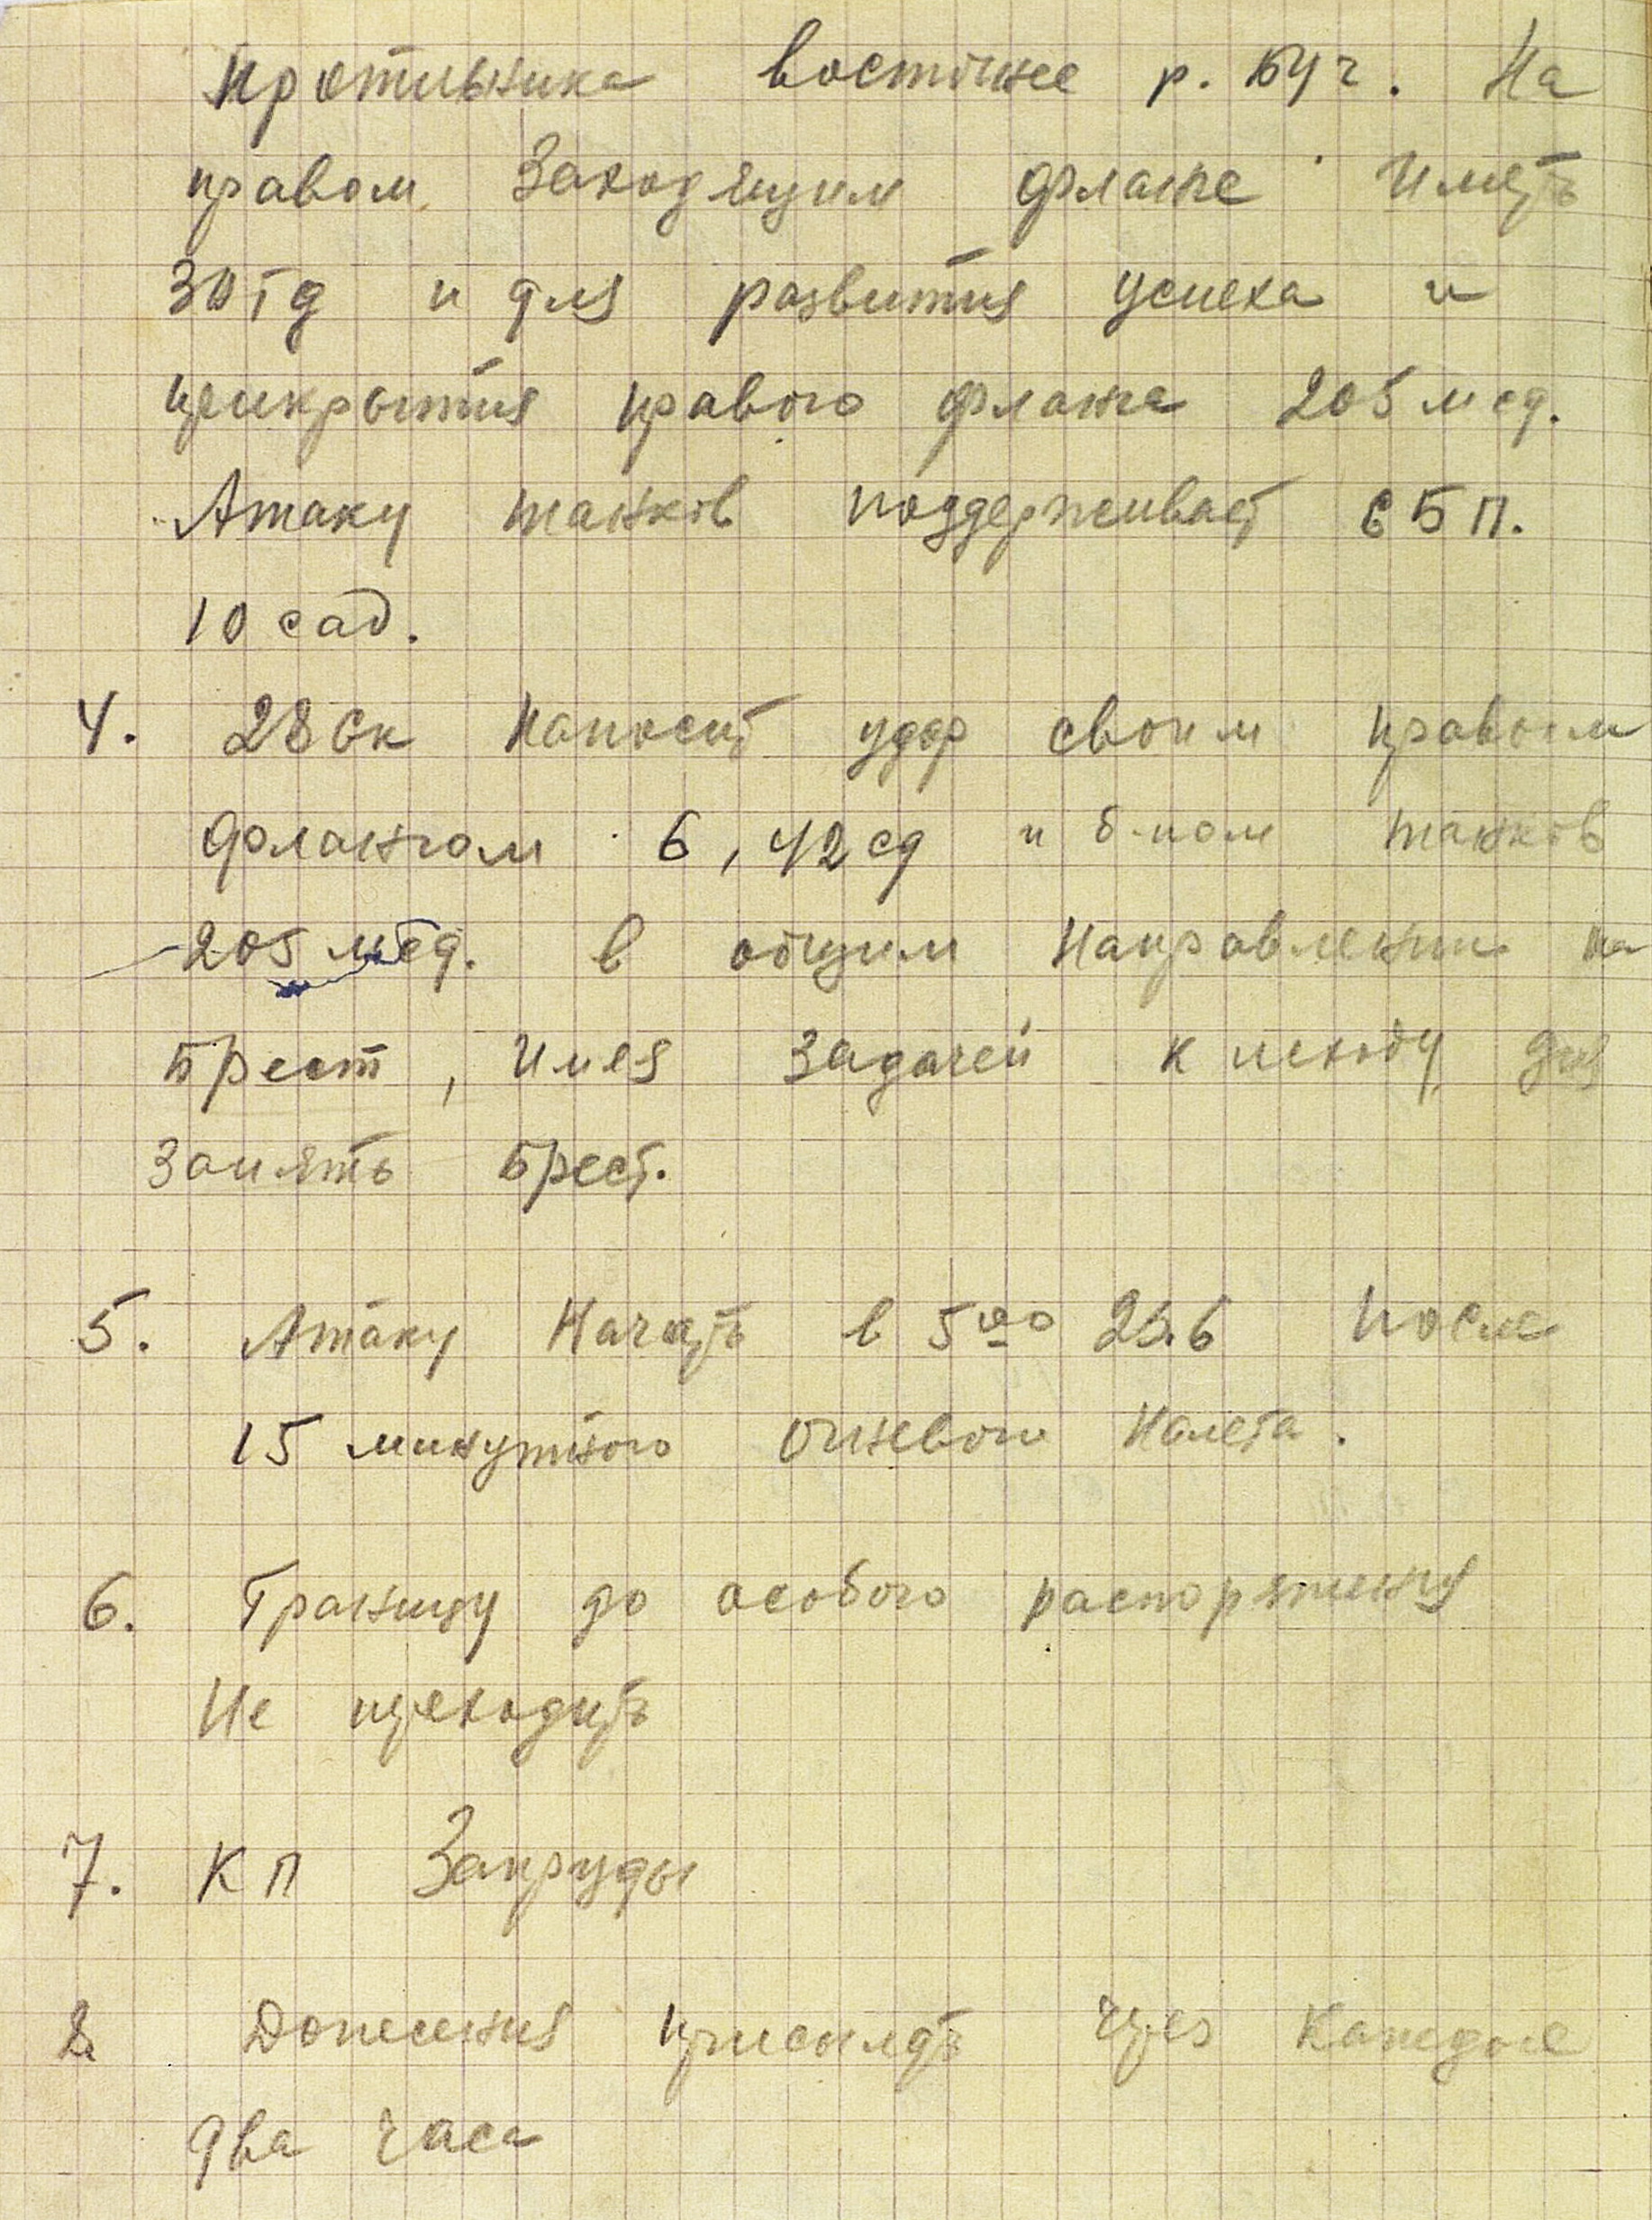 противника восточнее р. Буг. На
правом заходящим фланге иметь
30 тд и для развития успеха и
прикрытия правого фланга 205 мсд.
Атаку танков поддерживает СБП.
10 сад.
4. 28 ск наносит удар своим правым
флангом 6, 42 сд и б-ном танков
205 мсд. в общим направлении на
Брест, имея задачей к исходу дня
занять Брест.
5. Атаку начать в 5 00 23.6 после
15 минутного огневого налета.
6. Границу до особого распоряжения
не переходить
7. КП Запруды
8. Донесения присылать через каждые
два часа